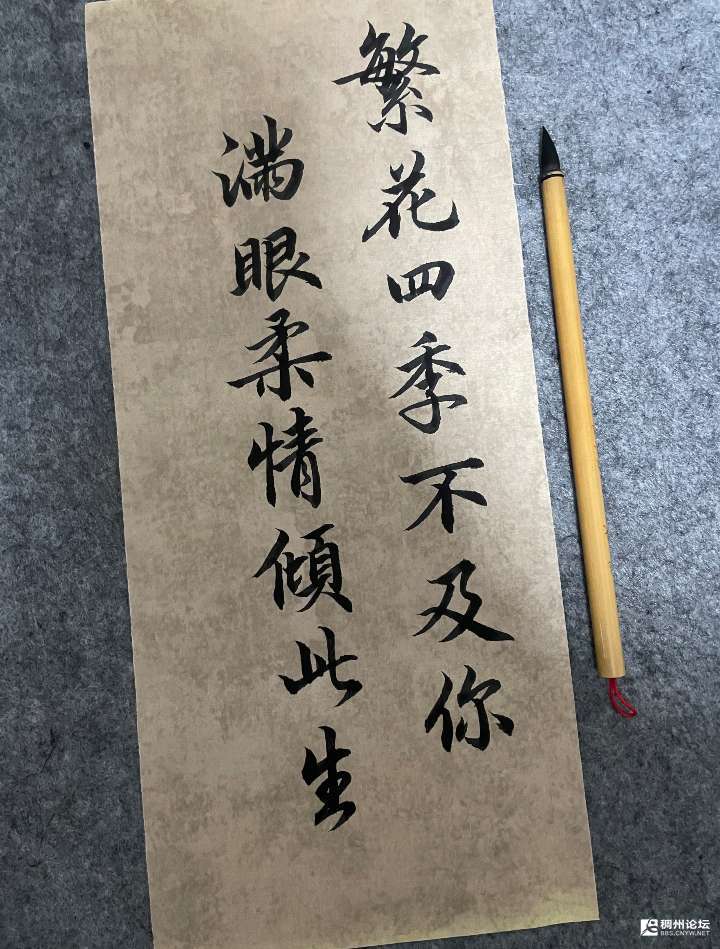 繁花四季不及你
满眼柔情倾此生
稠州论坛
BBS.CNYW.NET